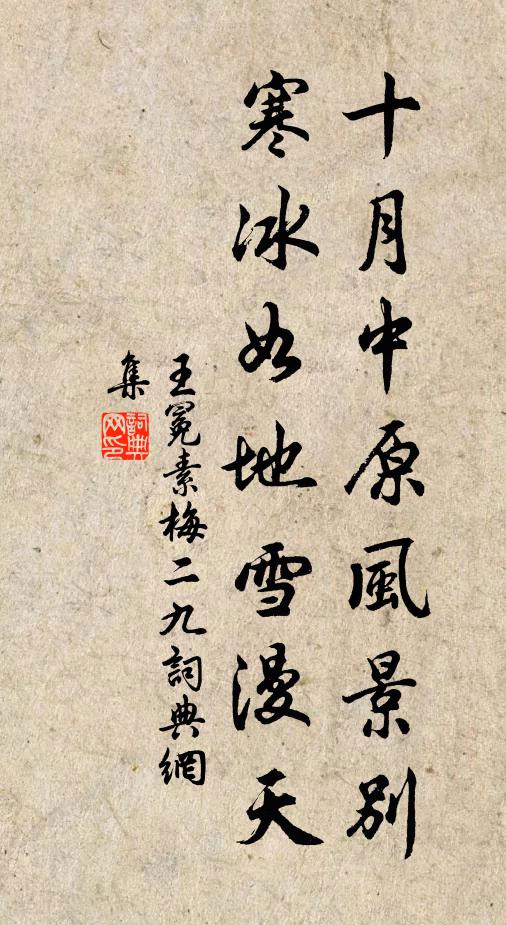 十月中原風景別
寒冰如地雪漫天
王冕素梅二九詞典網
集
詞典
网印